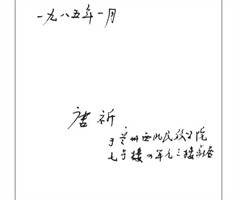 一九八五年一月
唐祈
于兰州西北民族学院
七号楼四单元三楼